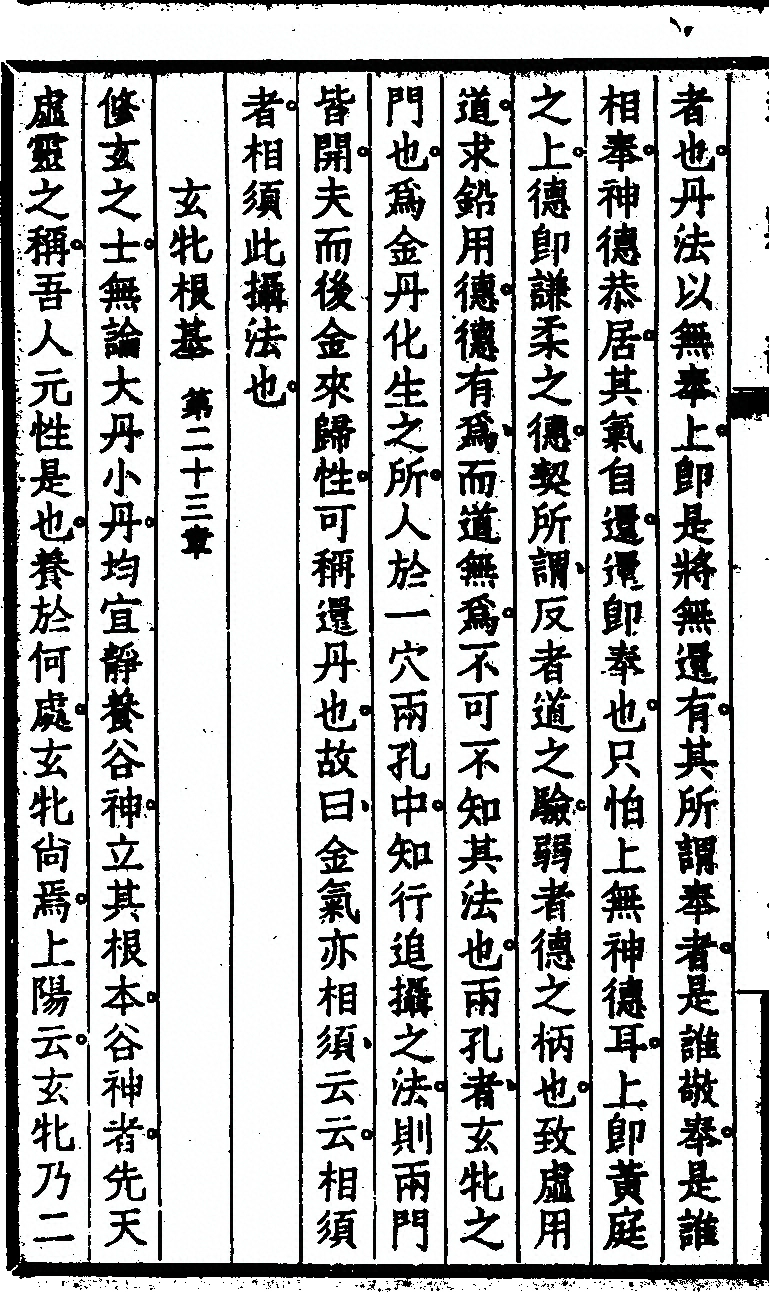 者也。丹法以無奉上。卽是將無還有。其所謂奉者。是誰敬奉。是誰
相奉。神德恭居。其氣自還。還卽奉也。只怕上無神德耳。上卽黃庭
之上。德卽謙柔之德。契所謂、反者道之驗。弱者德之柄也。致虛用
道。求鉛用德。德有爲、而道無爲。不可不知其法也。兩孔者、玄牝之
門也。爲金丹化生之所。人於一穴兩孔中。知行追攝之法。則兩門
皆開。夫而後金來歸性。可稱還丹也。故曰、金氣亦相須、云云。相須
者。相須此攝法也。
玄牝根基 第二十三章
修玄之士。無論大丹小丹。均宜靜養谷神。立其根本。谷神者。先天
虛靈之稱。吾人元性是也。養於何處。玄牝尙焉。上陽云。玄牝乃二